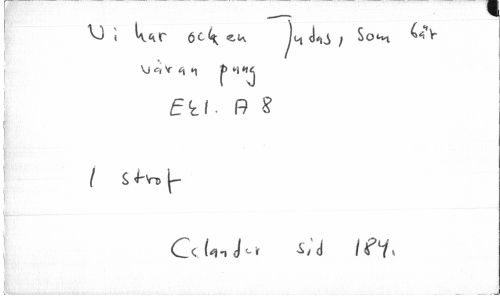 Vi har ock en Judas, som bär
våran pung
Ekl. A 8
1 strof
Celander sid 184.